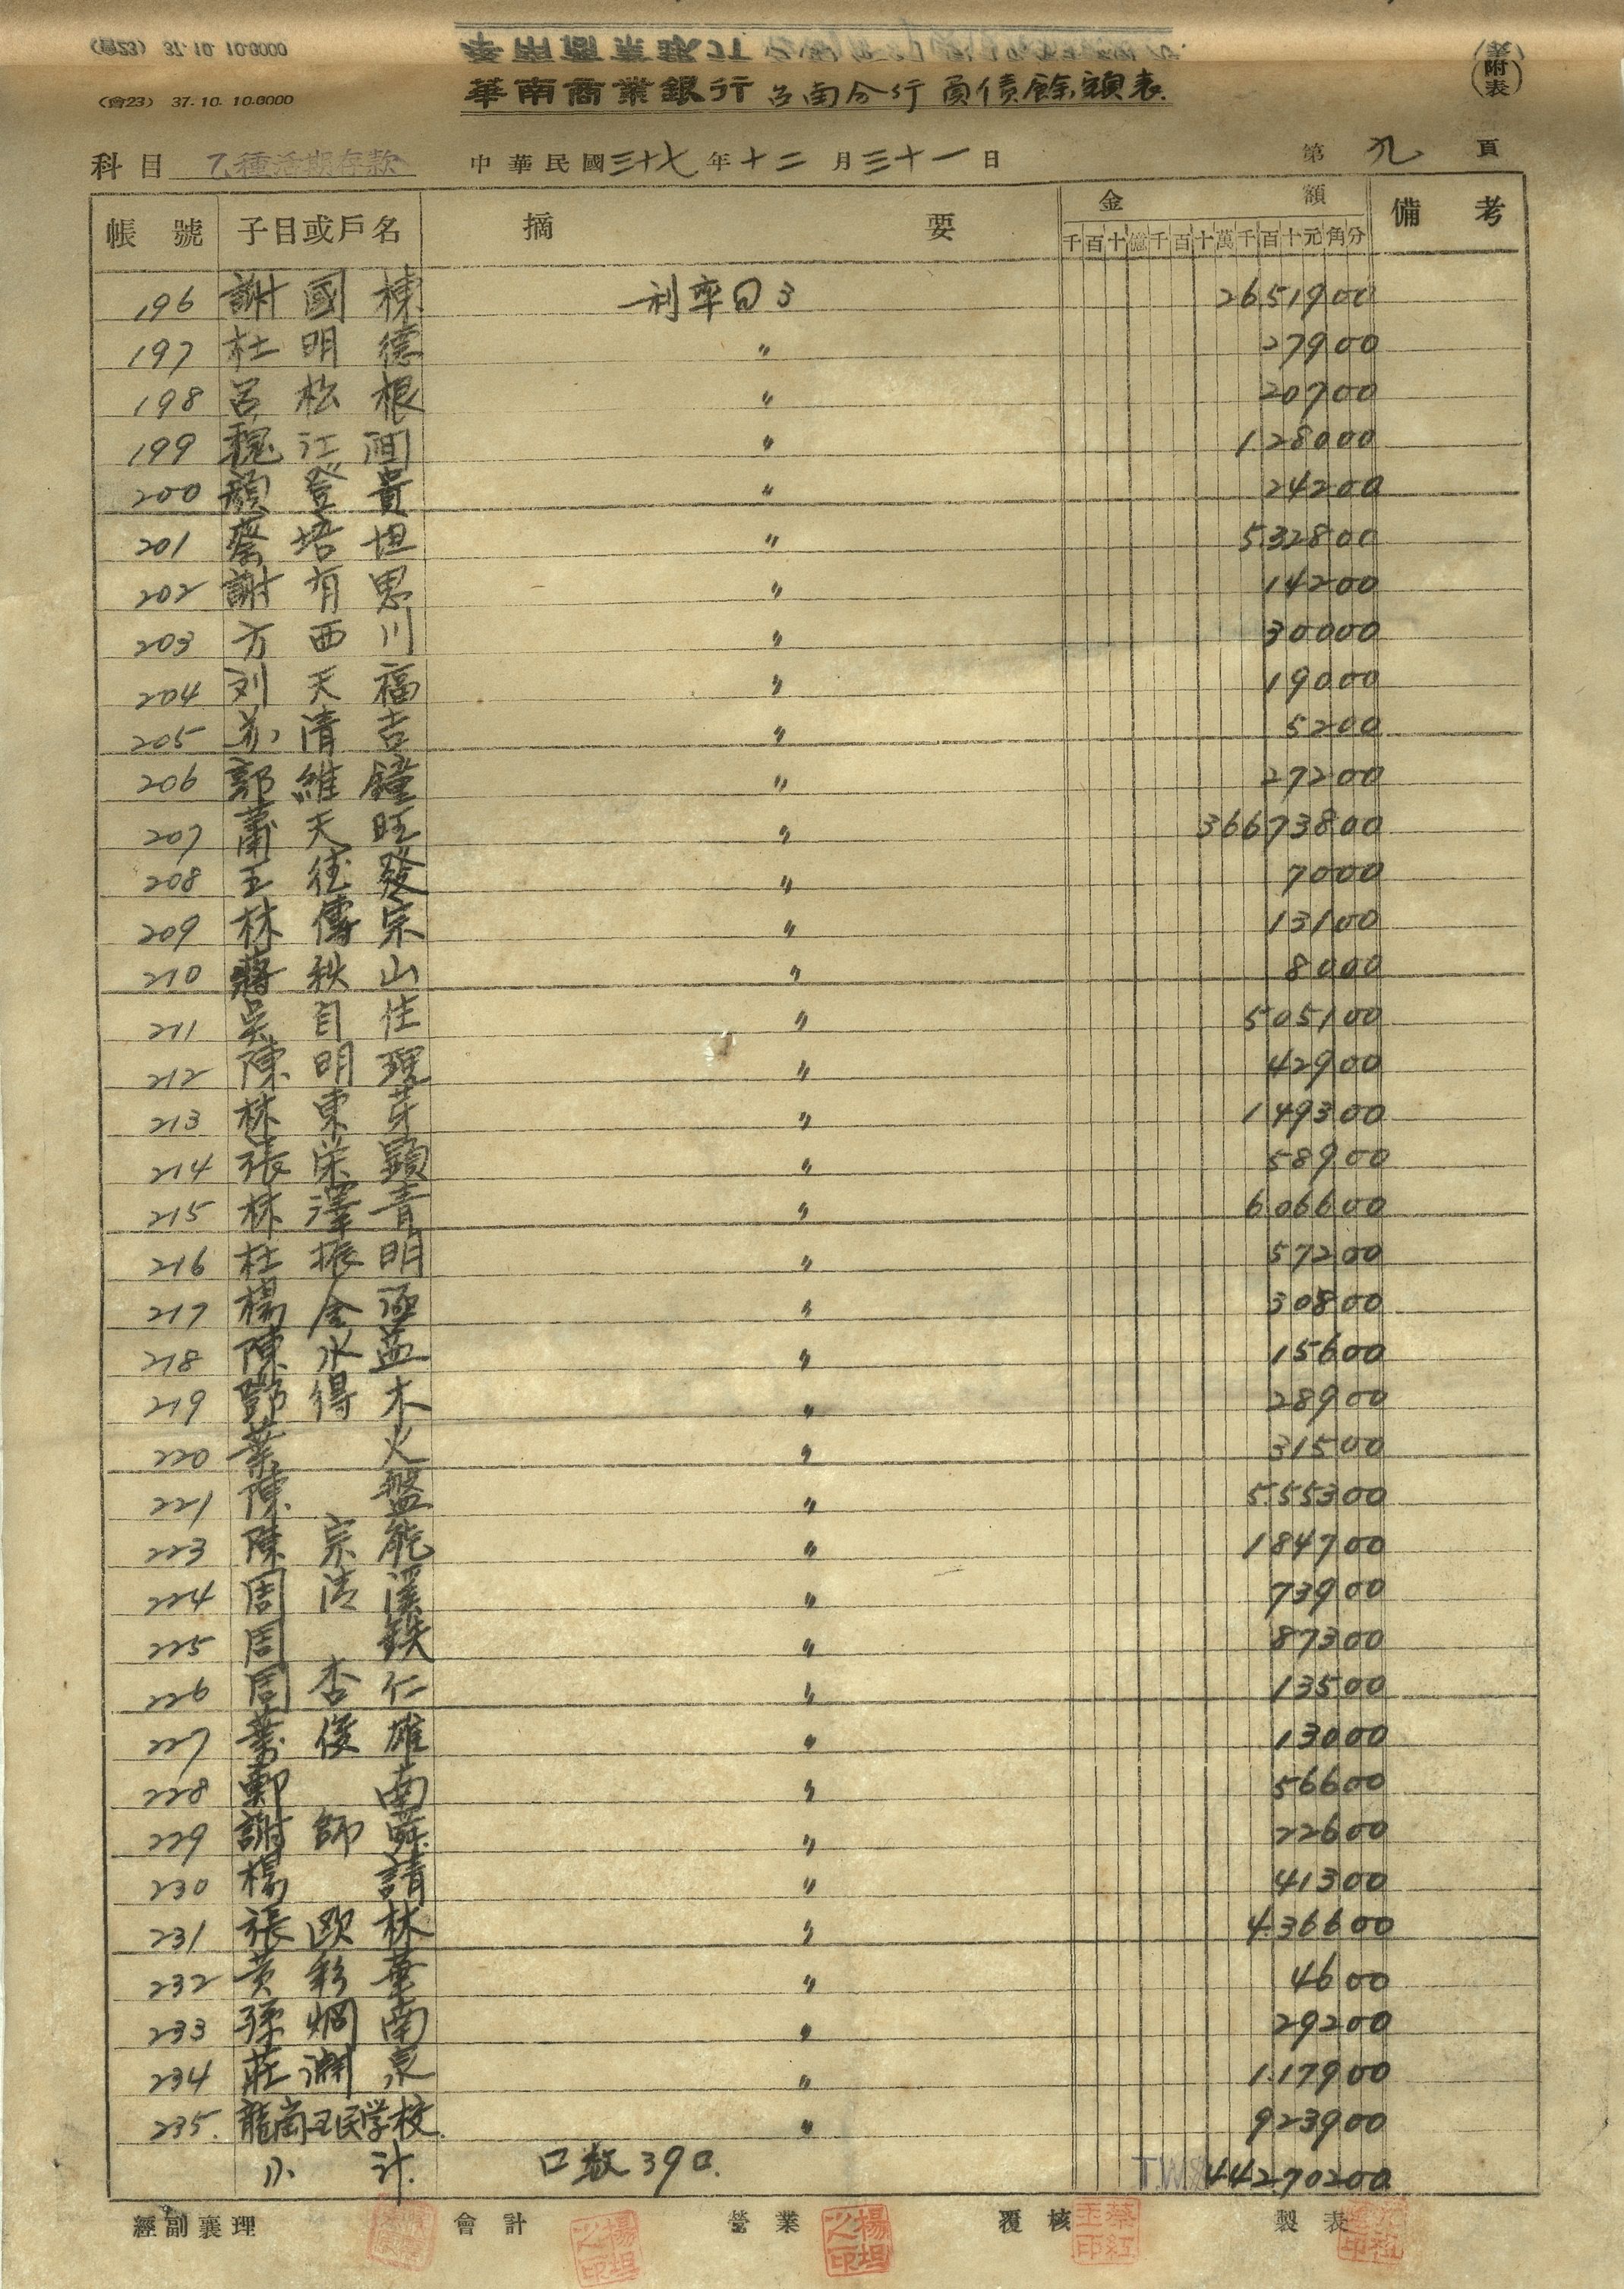 (會23) 37.10.10.0000
華南商業銀行 台南分行 負債餘額表
(附表)
科目 乙種活期存款 中華民國三十七年十二月三十一日 第九頁
帳號 子目或戶名 摘要 金額 備考
千百十億千百十萬千百十元角分
196 謝國棟 利率日3 2651900
197 杜明德 〃 27900
198 呂松根 〃 20700
199 魏江 〃 128000
200 顏登貴 〃 24200
201 蔡培坦 〃 532800
202 謝有恩 〃 14200
203 方西川 〃 30000
204 刘天福 〃 19000
205 苏清吉 〃 5200
206 郭維鐘 〃 27200
207 蕭天旺 〃 36673800
208 王從發 〃 7000
209 林傳宗 〃 13100
210 蔣秋山 〃 8000
211 吳自住 〃 505100
212 陳明理 〃 42900
213 林東芽 〃 149300
214 張栄顕 〃 58900
215 林澤青 〃 606600
216 杜振明 〃 57200
217 楊金極 〃 30800
218 陳水益 〃 15600
219 鄧得木 〃 28900
220 葉火 〃 31500
221 陳盤 〃 555300
223 陳宗能 〃 184700
224 周清溪 〃 73900
225 周鉄 〃 87300
226 周杏仁 〃 13500
227 葉俊雄 〃 13000
228 鄭南 〃 56600
229 謝師舜 〃 22600
230 楊請 〃 41300
231 張欧林 〃 436600
232 黃彩華 〃 4600
233 孫烱南 〃 29200
234 莊淵泉 〃 117900
235. 龍崗国民学校. 〃 923900
小計. 口数39口. T.W$44270200
經副襄理 會計 營業 覆核 製表
楊坦之印
蔡紅玉印